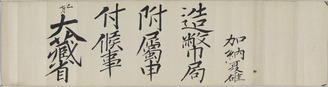 加納夏雄
造幣局
附屬申
付候事
大藏省